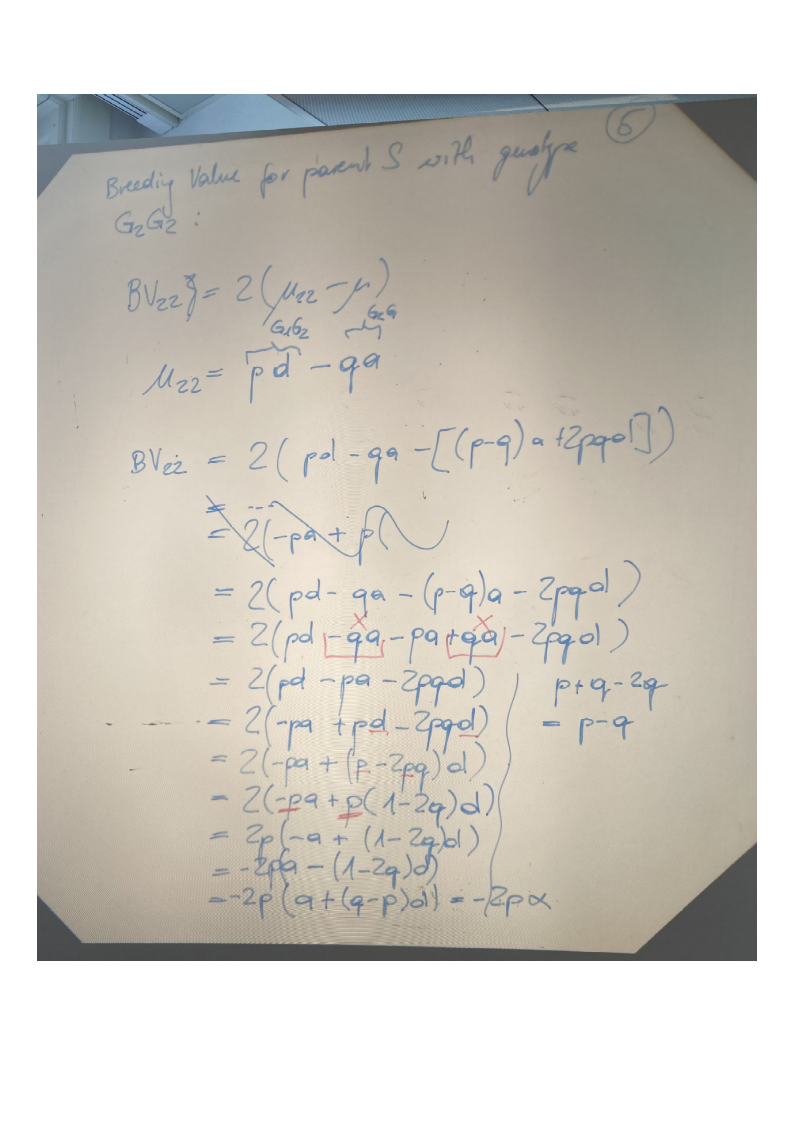 6
Breeding Value for parent S with genotype
G₂G₂ :
BV₂₂ = 2(μ₂₂ - μ)
G₁G₂
μ₂₂ = pd - qa
BV₂₂ = 2( pd - qa - [(p-q)a + 2pqd])
= ...
= 2(-pa + p(
= 2( pd - qa - (p-q)a - 2pqd )
x x
= 2(pd - qa - pa + qa - 2pqd )
= 2(pd - pa - 2pqd) p+q-2q
= 2(-pa + pd - 2pqd) = p-q
= 2(-pa + (p-2pq)d)
= 2(-pa + p(1-2q)d)
= 2p(-a + (1-2q)d)
= -2p(a - (1-2q)d)
= -2p(a+(q-p)d) = -2pα